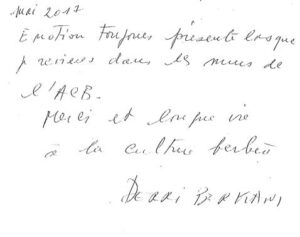 mai 2017
Emotion toujours présente lorsque
je reviens dans les murs de
l'ACB.
Merci et longue vie
à la culture berbère
DERRI BERKANI